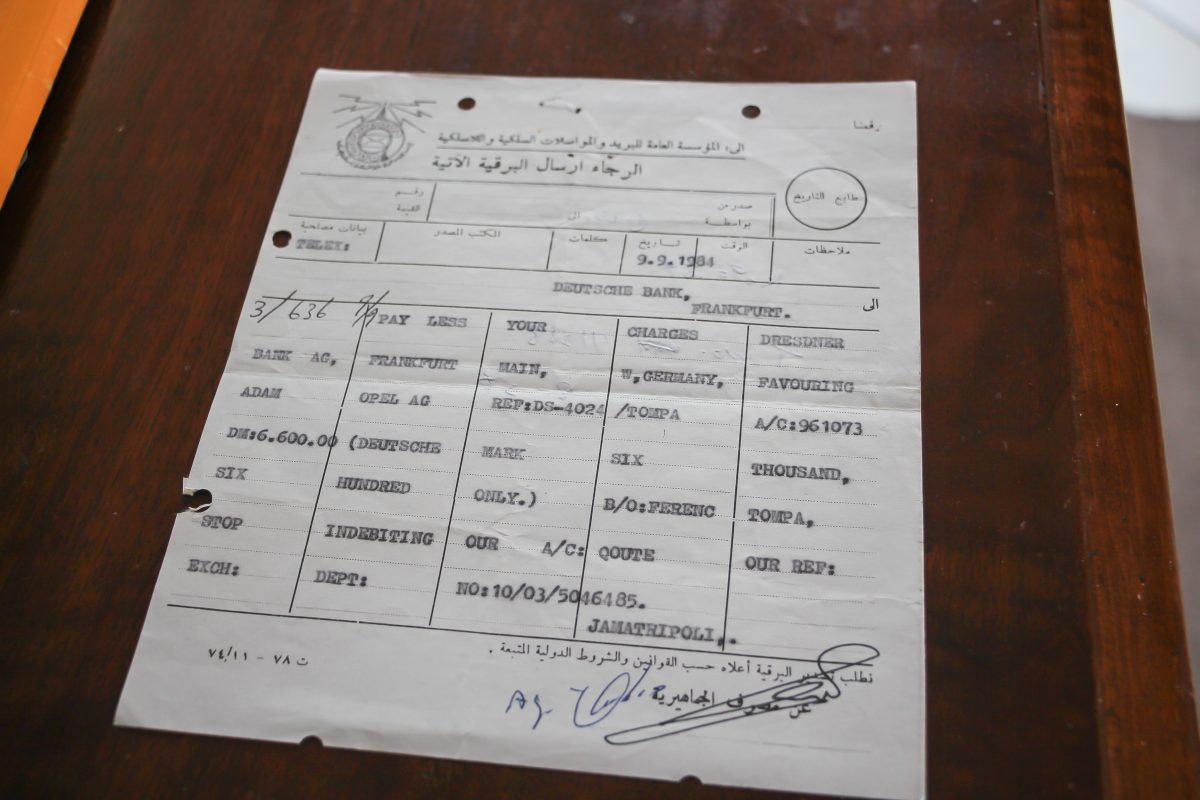 رقمنا
الى، المؤسسة العامة للبريد والمواصلات السلكية واللاسلكية
الرجاء ارسال البرقية الآتية
طابع التاريخ
صدر من
رقم
بواسطة
الى
القيمة
ملاحظات الوقت تاريخ كلمات المكتب المصدر بيانات مصاحبة
TELEX: 9.9.1984
DEUTSCHE BANK,
الى
FRANKFURT.
3/636 9/9 PAY LESS YOUR CHARGES DRESDNER
BANK AG, FRANKFURT MAIN, W,GERMANY, FAVOURING
ADAM OPEL AG REF:DS-4024 /TOMPA A/C:961073
DM:6.600.00 (DEUTSCHE MARK SIX THOUSAND,
SIX HUNDRED ONLY.) B/O:FERENC TOMPA,
STOP INDEBITING OUR A/C: QOUTE OUR REF:
EXCH: DEPT: NO:10/03/5046485.
JAMATRIPOLI,.
نطلب تصدير البرقية أعلاه حسب القوانين والشروط الدولية المتبعة .
ت ٧٨ - ٧٤/١١
عن مصرف الجماهيرية